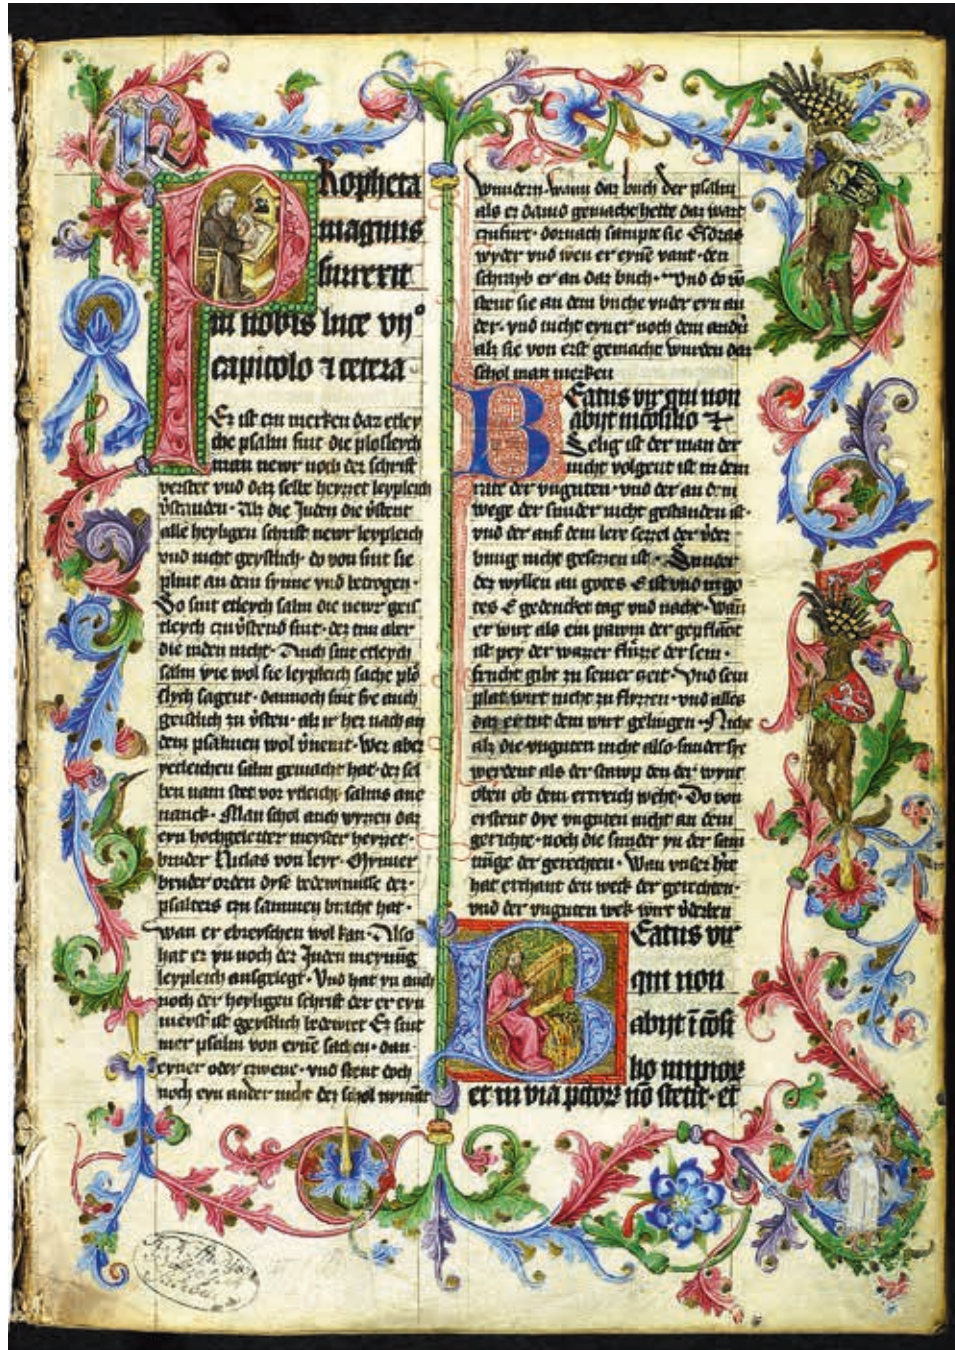 Propheta
magnus
surrexit
in nobis luce vijº
capitolo ⁊ cetera
Er ist ein merken daz etley
che psalm sint die plosleych
man newr noch der schrift
verstet vnd daz selbe heyzzet leypleich
v̓standen · Als die Juden die v̓stent
alle heyligen schrift newr leypleich
vnd nicht geystlich · do von sint sie
plint an dem synne vnd betrogen ·
So sint etleych salm die newr geist
tleych czu v̓stend sint · der tun aber
die iuden nicht · Auch sint etleych
salm wie wol sie leypleich sache plo
slych sagent · dannoch sint sye auch
geistlich zu v̓sten · als ir her nach an
dem psalmen wol v̓nemt · Wer aber
yetleichen salm gemacht hat · der sel
ben nam stet vor ytleichs salms ane
uanck · Man schol auch wyzzen daz
eyn hochgelerter meyster heyzzet ·
bruder Niclas von leyr · Mynner
bruder orden dyse bedewtnusse der
psalters czu sammen bracht hat ·
wan er ebreyschen wol kan · Also
hat er yn noch der Juden meynung
leypleich ausgelegt · Vnd hat yn auch
noch der heyligen schrift der er eyn
meyst ist geystlich bedewtet Es sint
mer psalm von eyne sachen · dan
eyner oder czwene · vnd stent doch
noch eyn ander nicht dez schol nyma͂t
wundern · wann daz buch der psalm
als er dauid gemacht hette daz wart
czusturt · dornach sampte sie Esdras
wyder vnd wen er eyne͂ vant · den
schrayb er an daz buch · Vnd do vo͂
stent sie an dem buche vnder eyn an
der · vnd nicht eyner noch dem andn̓
als sie von erst gemacht wurden daz
schol man merken
Beatus vir qui non
abyt inconsilio ⁊c
Selig ist der man der
nicht volgent ist in dem
rate der vnguten · vnd der an dem
wege der sunder nicht gestanden ist ·
vnd der auf dem lere sezzel der v̓der
bnung nicht gesezzen ist · Sunder
der wyllen an gotes E ist vnd in go
tes E gedencket tag vnd nacht · Wan
er wirt als ein pawm der gepflanczt
ist pey der wazzer fluzze der sein
frucht gibt zu seiner zeit · Vnd sein
plat wirt nicht zu flyzzen · vnd alles
daz er tut dem wirt gelingen · Nicht
als die vnguten nicht also · sunder sye
werdent als der stawp den der wynt
oben ob dem ertreich weht · Do von
erstent dye vnguten nicht an dem
gerichte · noch die sunder yn der sam
nu͂ge der gerechten · Wan vnser h̓re
hat erchant den weck der gerechten ·
vnd der vnguten wek wirt v̓derben
Beatus vir
qui non
abyt i͂ co͂si
lio impior̓
et in via pctor̓ no͂ stetit · et